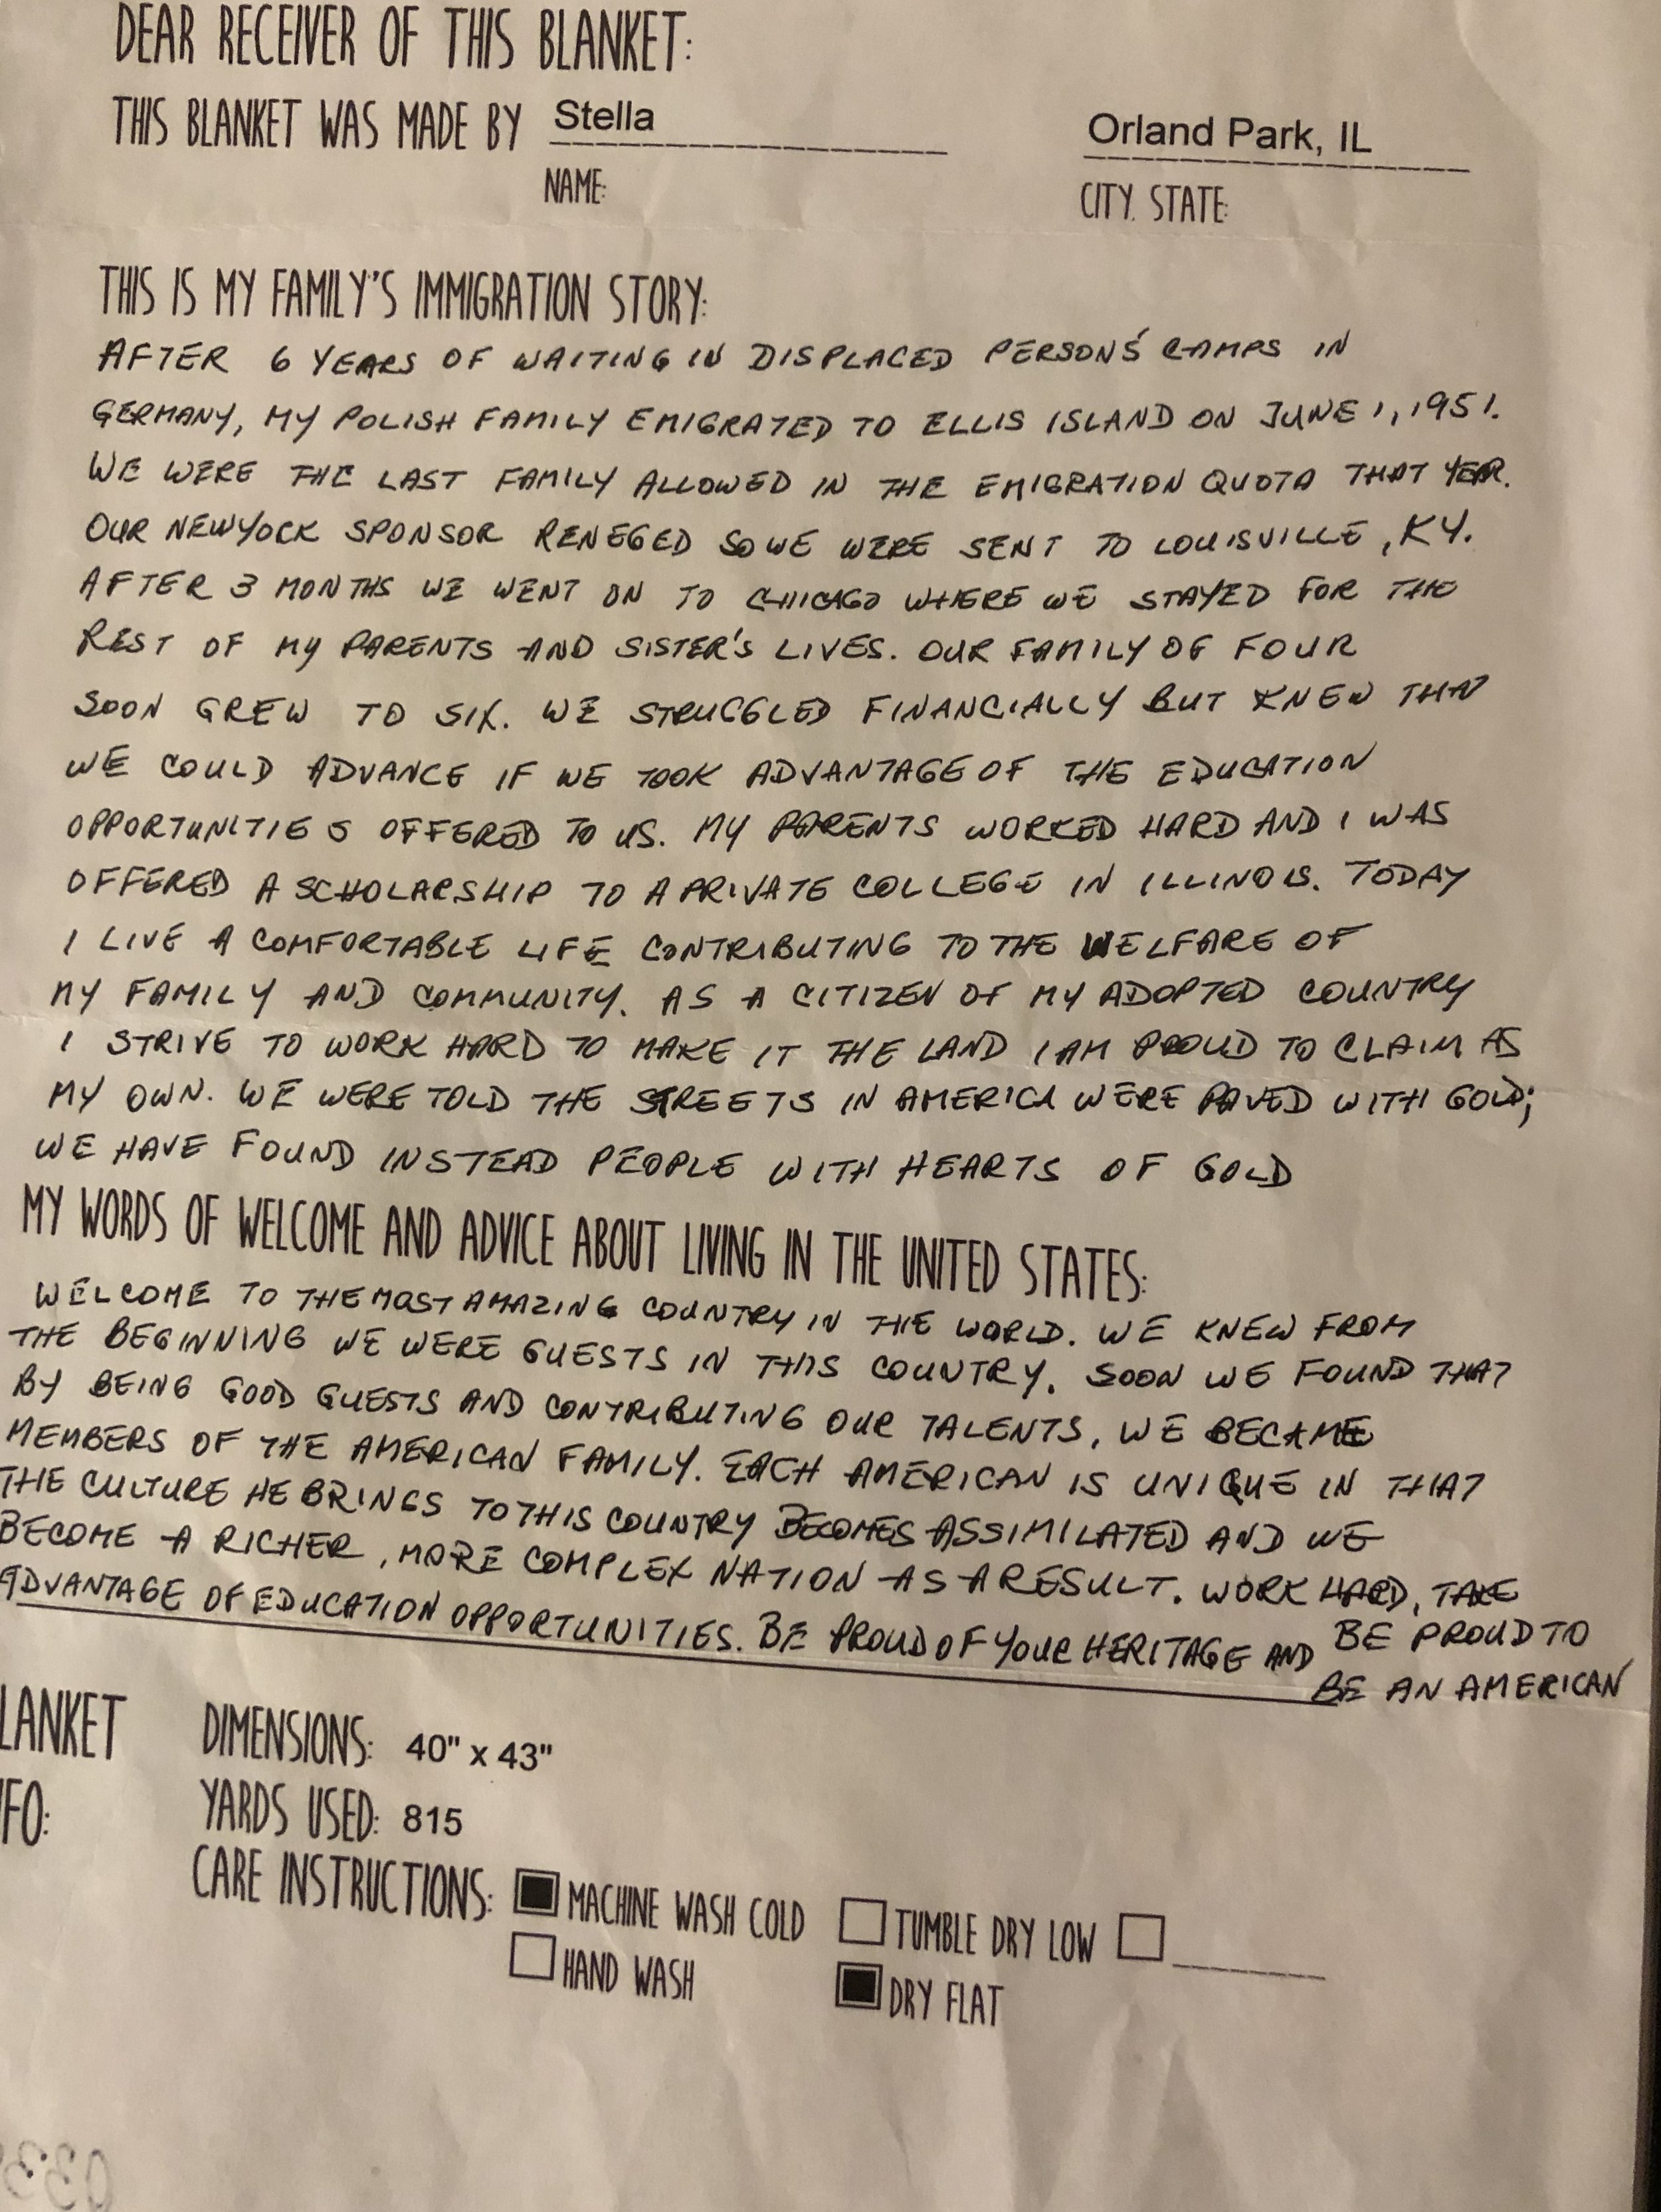 DEAR RECEIVER OF THIS BLANKET:
THIS BLANKET WAS MADE BY Stella Orland Park, IL
NAME: CITY, STATE:
THIS IS MY FAMILY'S IMMIGRATION STORY:
AFTER 6 YEARS OF WAITING IN DISPLACED PERSONS' CAMPS IN
GERMANY, MY POLISH FAMILY EMIGRATED TO ELLIS ISLAND ON JUNE 1, 1951.
WE WERE THE LAST FAMILY ALLOWED IN THE EMIGRATION QUOTA THAT YEAR.
OUR NEW YORK SPONSOR RENEGED SO WE WERE SENT TO LOUISVILLE, KY.
AFTER 3 MONTHS WE WENT ON TO CHICAGO WHERE WE STAYED FOR THE
REST OF MY PARENTS AND SISTER'S LIVES. OUR FAMILY OF FOUR
SOON GREW TO SIX. WE STRUGGLED FINANCIALLY BUT KNEW THAT
WE COULD ADVANCE IF WE TOOK ADVANTAGE OF THE EDUCATION
OPPORTUNITIES OFFERED TO US. MY PARENTS WORKED HARD AND I WAS
OFFERED A SCHOLARSHIP TO A PRIVATE COLLEGE IN ILLINOIS. TODAY
I LIVE A COMFORTABLE LIFE CONTRIBUTING TO THE WELFARE OF
MY FAMILY AND COMMUNITY. AS A CITIZEN OF MY ADOPTED COUNTRY
I STRIVE TO WORK HARD TO MAKE IT THE LAND I AM PROUD TO CLAIM AS
MY OWN. WE WERE TOLD THE STREETS IN AMERICA WERE PAVED WITH GOLD;
WE HAVE FOUND INSTEAD PEOPLE WITH HEARTS OF GOLD
MY WORDS OF WELCOME AND ADVICE ABOUT LIVING IN THE UNITED STATES:
WELCOME TO THE MOST AMAZING COUNTRY IN THE WORLD. WE KNEW FROM
THE BEGINNING WE WERE GUESTS IN THIS COUNTRY. SOON WE FOUND THAT
BY BEING GOOD GUESTS AND CONTRIBUTING OUR TALENTS, WE BECAME
MEMBERS OF THE AMERICAN FAMILY. EACH AMERICAN IS UNIQUE IN THAT
THE CULTURE HE BRINGS TO THIS COUNTRY BECOMES ASSIMILATED AND WE
BECOME A RICHER, MORE COMPLEX NATION AS A RESULT. WORK HARD, TAKE
ADVANTAGE OF EDUCATION OPPORTUNITIES. BE PROUD OF YOUR HERITAGE AND BE PROUD TO
BE AN AMERICAN
LANKET DIMENSIONS: 40" x 43"
FO: YARDS USED: 815
CARE INSTRUCTIONS: MACHINE WASH COLD TUMBLE DRY LOW
HAND WASH DRY FLAT